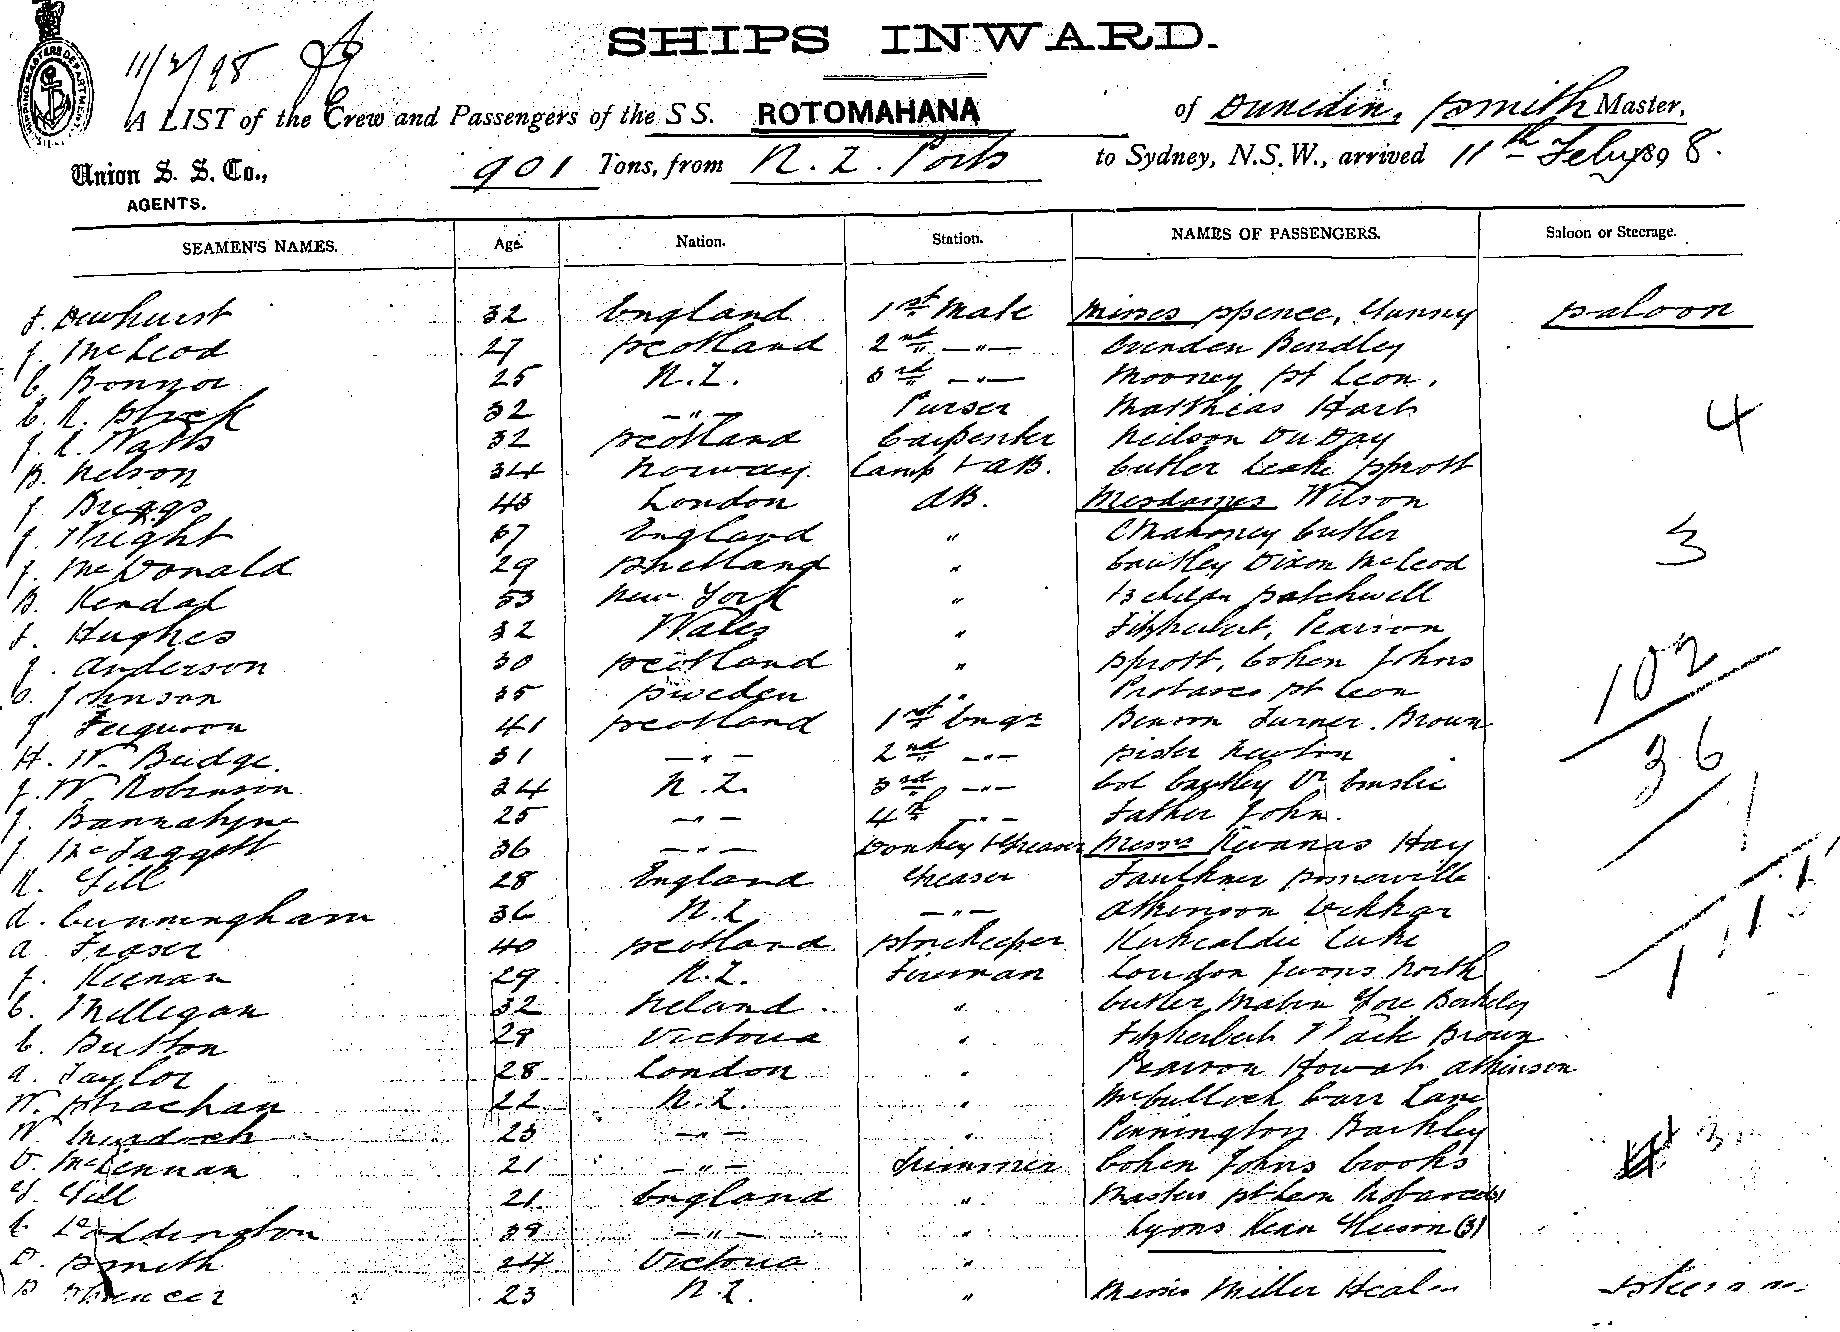 SHIPS INWARD.
11/2/98
A LIST of the Crew and Passengers of the S S. ROTOMAHANA of Dunedin, Smith Master,
Union S. S. Co., AGENTS. 901 Tons, from N. Z. Ports to Sydney, N.S.W., arrived 11th Feby 1898.
SEAMEN'S NAMES. Age. Nation. Station. NAMES OF PASSENGERS. Saloon or Steerage.
Dewhurst 32 England 1st Mate Misses Spence, Saloon
J. McLeod 27 Scotland 2nd —"— Bendley
C. Bonnor 25 N.Z. 3rd —"— Mooney St Leon.
32 —"— Purser Matthias Hart 4
J. R. Watts 32 Scotland Carpenter Neilson Du Day
B. Nelson 34 Norway. Lamp & AB. Butler Leake Sprott
J. Briggs London AB. Mesdames Wilson
J. Wright England " Mahoney Butler 3
J. McDonald 29 Shetland " Dixon McLeod
B. Kendal 53 New York " Patchwell
Hughes 32 Wales " Fitzherbert, Pearson
J. Anderson 30 Scotland " Sprott, Cohen Johns 102
C. Johnson 35 Sweden " St Leon
J. Ferguson 41 Scotland 1st Engr Benson Turner. Brown 36
H. W. Budge. 31 —"— 2nd —"— Sister
J. W. Robinson 24 N.Z. 3rd —"— Col
J. Bannatyne 25 —"— 4th —"— Father John. 1
J. McTaggett 36 —"— Donkey & Greaser Messrs Hay
R. Gill 28 England Greaser Faulkner Somerville
A. Cunningham 36 N.Z. —"— Atkinson
A. Fraser 40 Scotland Storekeeper Kirkcaldie Luke
Keenan 29 N.Z. Fireman Loudon North
C. Milligan 32 Ireland. " Butler Gore
C. Button 29 Victoria " Fitzherbert Brown
A. Taylor 28 London " Pearson Howat Atkinson
W. Strachan 22 N.Z. " McCulloch Carr Lane
W. Murdoch —"— " Pennington Barkley 3
D. McLennan 21 —"— Trimmer Cohen Johns Crooks
G. Gill 21 England " Masters St Leon
Coddington 39 —"— " Lyons Kean (3)
D. Smith 24 Victoria "
Spencer 23 N.Z. " Misses Miller